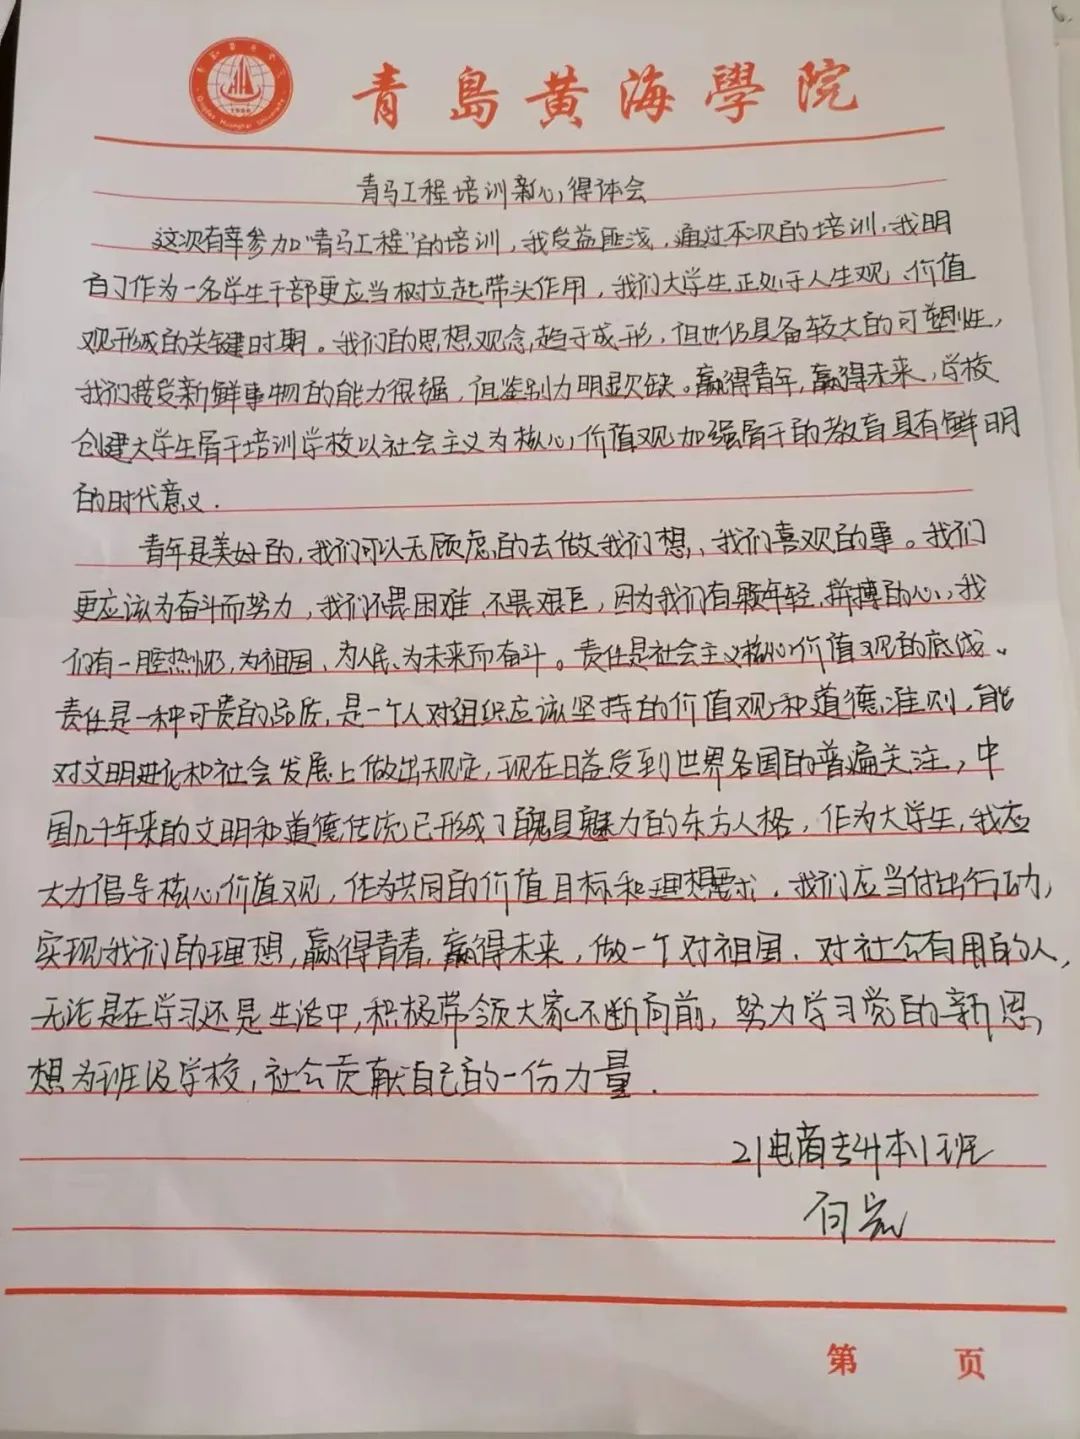 青岛黄海學院
Qingdao Huanghai University
1996
青马工程培训新心得体会
这次有幸参加"青马工程"的培训，我受益匪浅，通过本次的培训，我明
白了作为一名学生干部更应当树立起带头作用，我们大学生正处于人生观、价值
观形成的关键时期。我们的思想观念趋于成形，但也仍具备较大的可塑性，
我们接受新鲜事物的能力很强，但鉴别力明显欠缺。赢得青年，赢得未来，学校
创建大学生骨干培训学校以社会主义为核心价值观加强骨干的教育具有鲜明
的时代意义．
青年是美好的，我们可以无顾虑的去做我们想、我们喜欢的事。我们
更应该为奋斗而努力，我们不畏困难、不畏艰巨，因为我们有颗年轻、拼搏的心，我
们有一腔热忱，为祖国、为人民、为未来而奋斗。责任是社会主义核心价值观的底线、
责任是一种可贵的品质，是一个人对组织应该坚持的价值观和道德准则，能
对文明进化和社会发展上做出规定，现在日益受到世界各国的普遍关注，中
国几千年来的文明和道德传统已形成了颇具魅力的东方人格，作为大学生，我应
大力倡导核心价值观，作为共同的价值目标和理想需求．我们应当付出行动，
实现我们的理想，赢得青春，赢得未来，做一个对祖国、对社会有用的人，
无论是在学习还是生活中，积极带领大家不断向前，努力学习党的新思
想为班级学校，社会贡献自己的一份力量．
21电商专升本1班
第 页